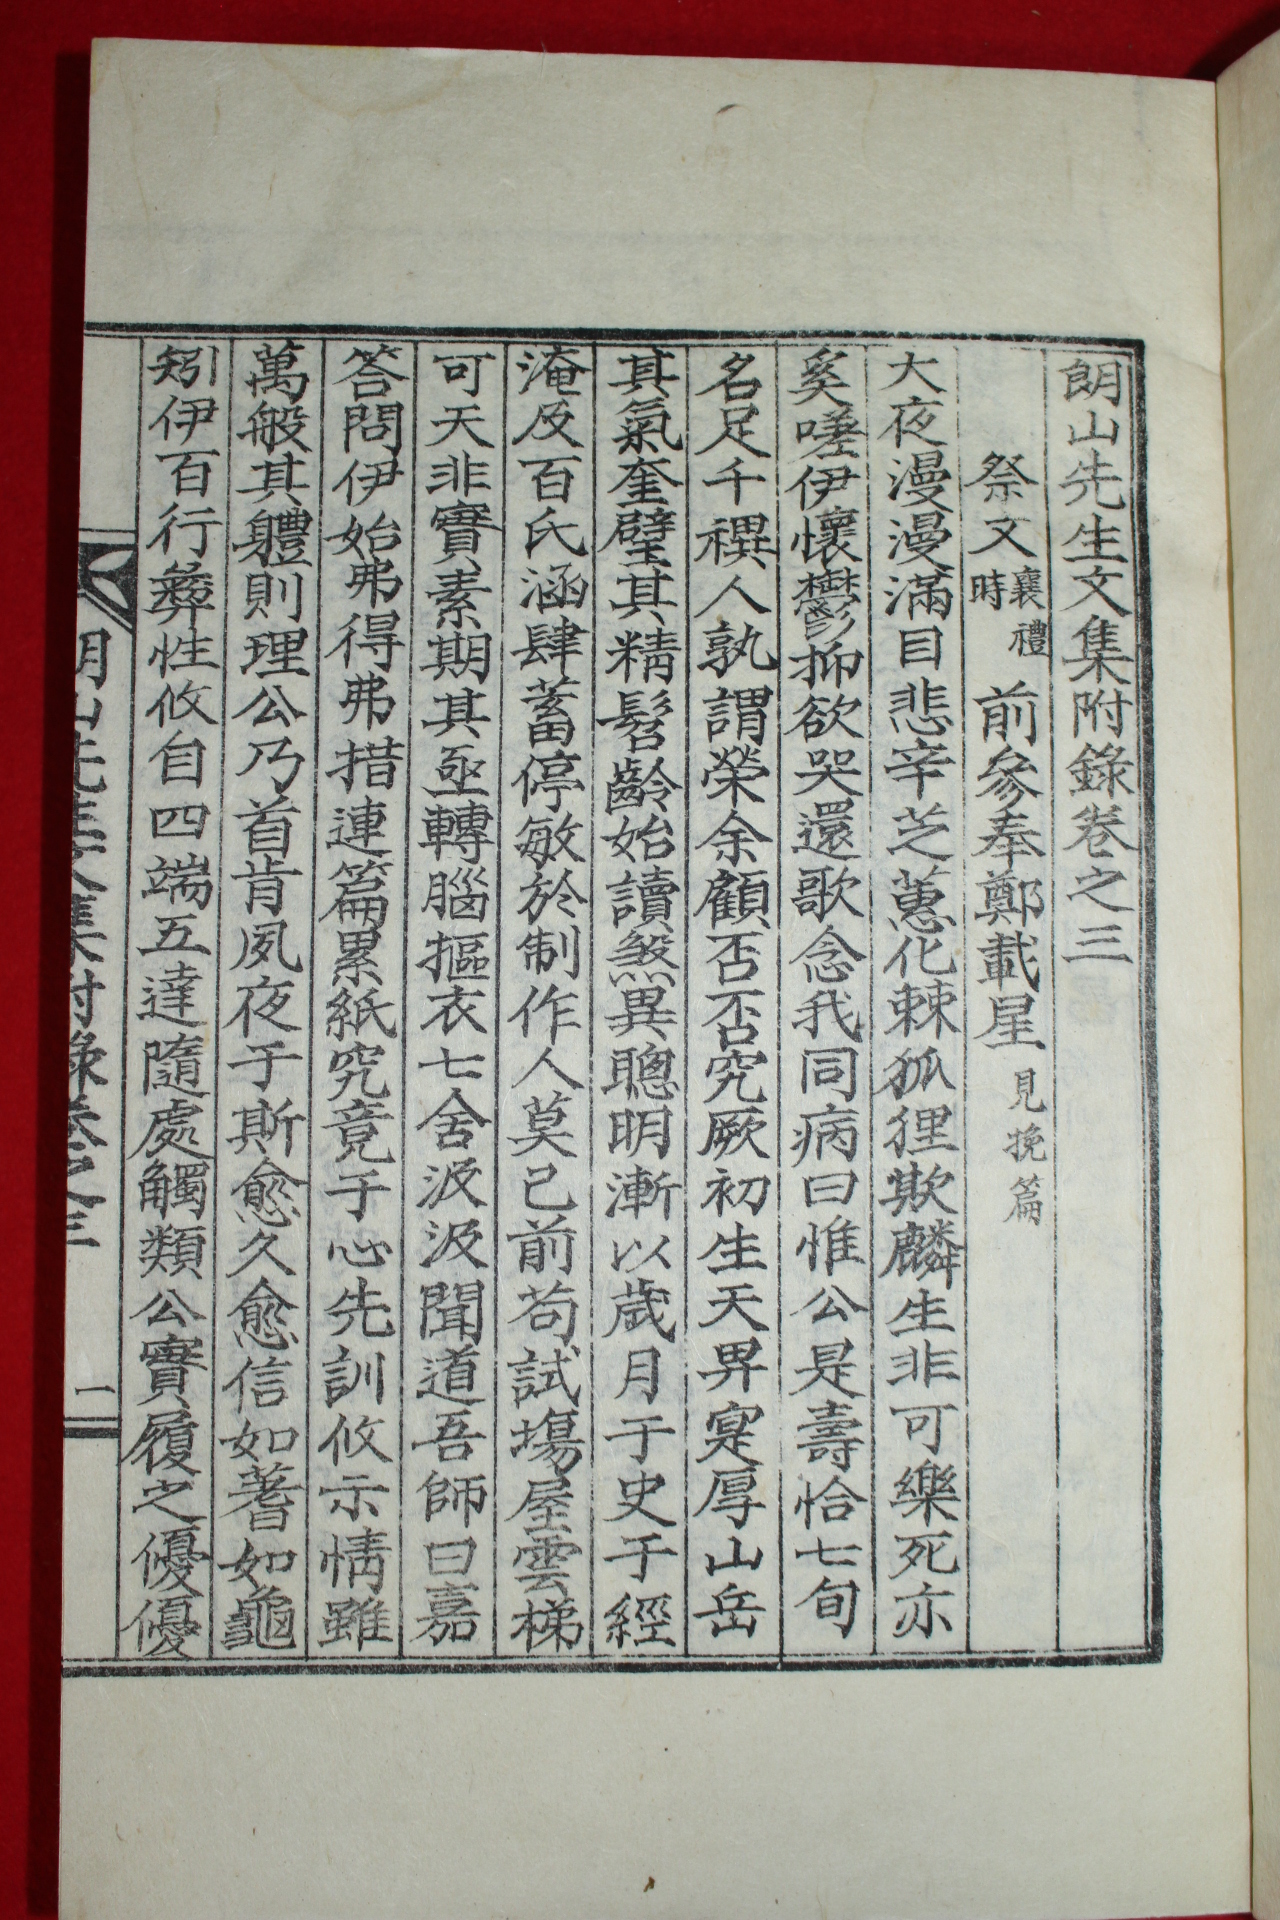 朗山先生文集附錄卷之三
祭文 襄禮時 前參奉鄭載星 見挽篇
大夜漫漫滿目悲辛芝蕙化棘狐狸欺麟生非可樂死亦
奚嗟伊懷鬱抑欲哭還歌念我同病曰惟公是壽恰七旬
名足千禩人孰謂榮余顧否否究厥初生天畀寔厚山岳
其氣奎璧其精髫齡始讀煞異聰明漸以歲月于史于經
淹及百氏涵肆蓄停敏於制作人莫己前苟試塲屋雲梯
可天非實素期其亟轉腦摳衣七舍汲汲聞道吾師曰嘉
答問伊始弗得弗措連篇累紙究竟于心先訓攸示情雖
萬般其軆則理公乃首肯夙夜于斯愈久愈信如蓍如龜
矧伊百行彜性攸自四端五達隨處觸類公實履之優優
朗山先生文集附錄卷之三 一